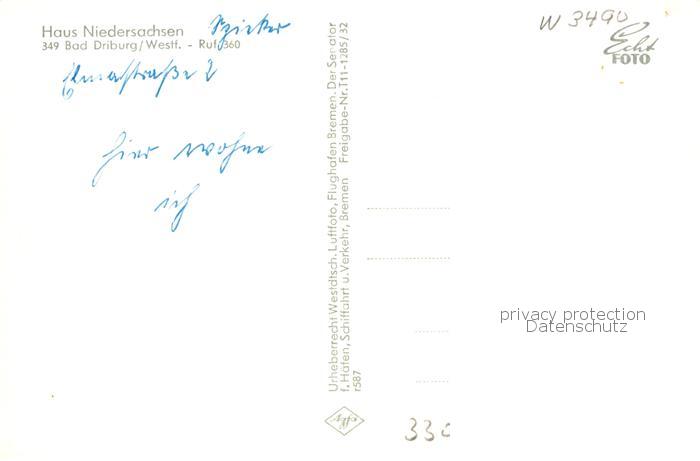 Haus Niedersachsen
349 Bad Driburg/Westf. - Ruf 360
hier wohne
ich
Urheberrecht Westdtsch. Luftfoto, Flughafen Bremen. Der Senator
f. Häfen, Schiffahrt u. Verkehr, Bremen Freigabe-Nr. T11-1285/32
r587
Agfa
W 3490
Echt
FOTO
privacy protection
Datenschutz
330